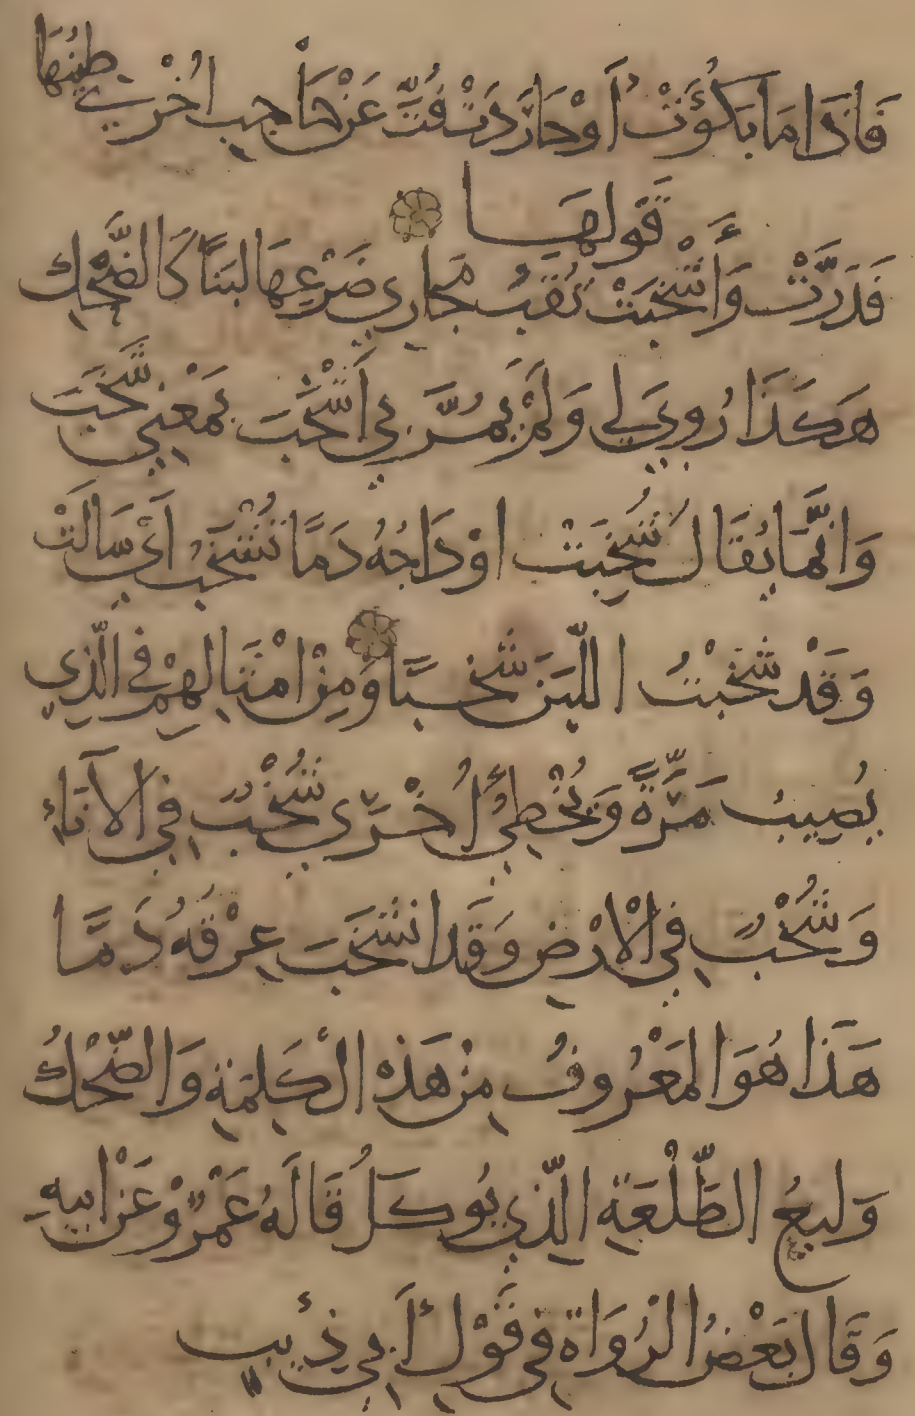 فَاِذَا مَا بَكُوَتْ أَوْ حَارَدَتْ فُتَّ عَنْ حَاجِبِ اُخْرَي طِينُهَا
قَوْلهَا
فَدَرَّتْ وَأَشْخَبَتْ نُقَبُ مَجَارِي ضَرْعِهَا لبَنًا كَالضَّحْكِ
هَكَذَا رُوِيَ لي وَلَمْ يَمُرَّ بِي أَشْخَبَ بِمَعْنِي شَخَبَ
وَانَّمَا يُقَالُ شُخِبَتْ اوْدَاجُهُ دَمًا تُشْخَبُ أَيْ سَالَتْ
وَقَدْ شَخَبْتُ اللّبَن شَخْبًا وَمِنْ امْثَالِهِمْ في الّذِي
يُصِيبُ مَرَّةً وَيُخْطِئُ اُخْرَي شُخْبٌ فِي الْاِنَاءِ
وَشُخْبٌ فِي الْارْضِ وَقَد انْشَخَبَ عِرْقُهُ دَمًا
هَذَا هُوَ المَعْرُوفُ مِنْ هَذِه الْكَلِمَةِ وَالضَّحْكُ
وَلِيعُ الطَّلْعَةِ الّذِي يُوكَلُ قَالَهُ عَمْرٌو عَنْ ابِيهِ
وَقَالَ بَعْضُ الرُّوَاةِ فِي قَوْلِ أَبِي ذُؤَيبٍ